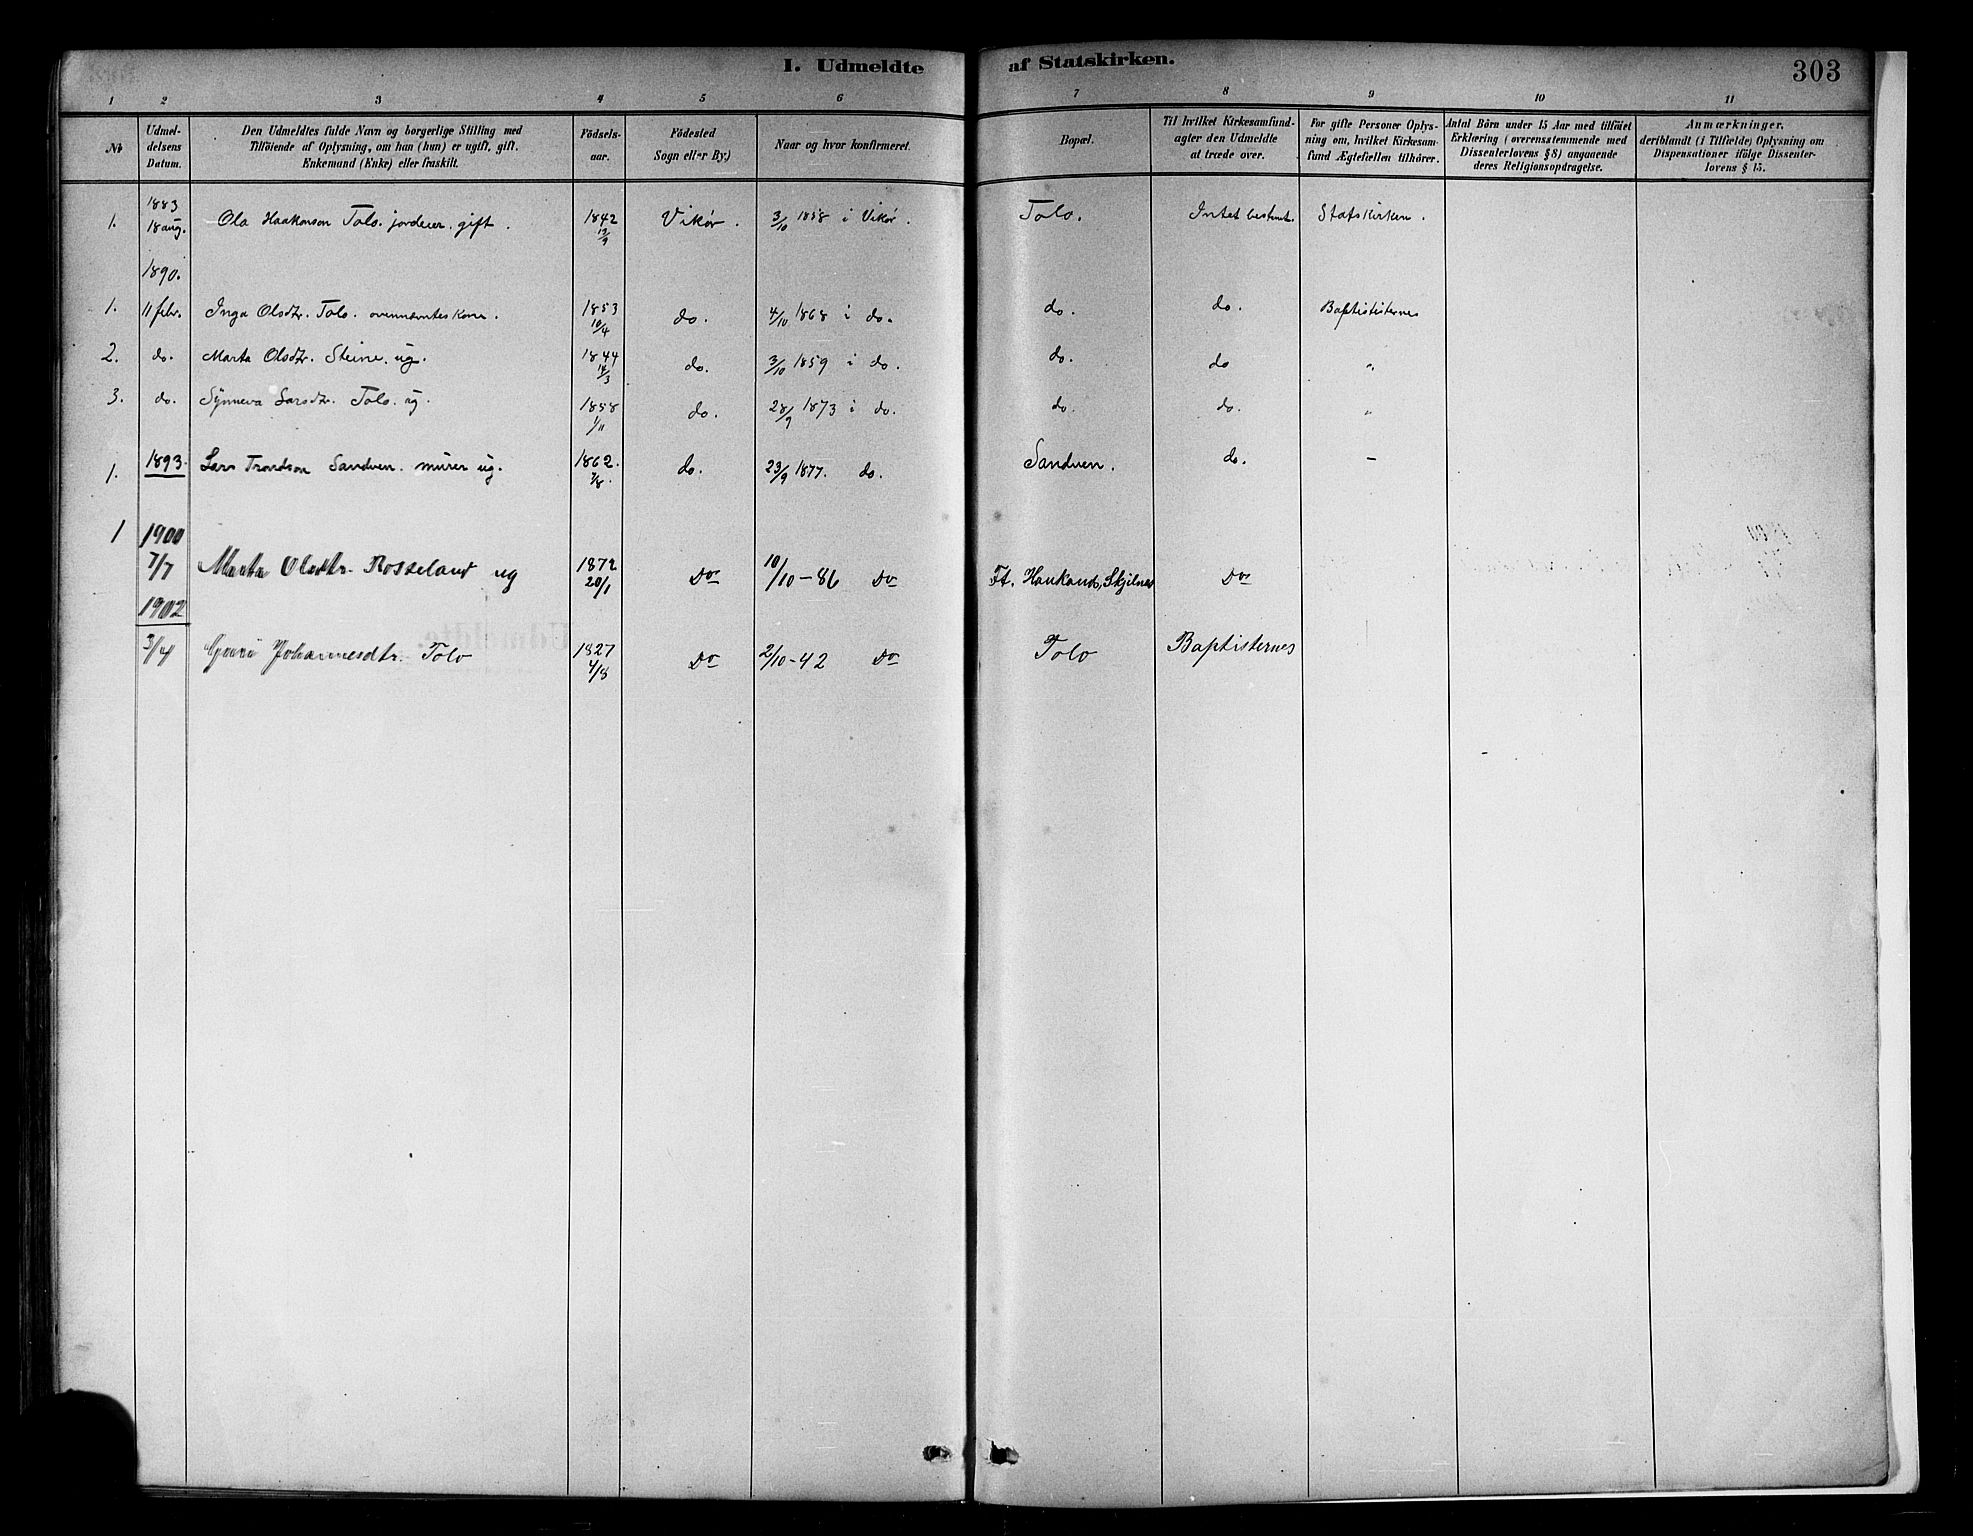 I. Udmeldte af Statskirken. 303
1 2 3 4 5 6 7 8 9 10 11
№ Udmeldelsens Datum. Den Udmeldtes fulde Navn og borgerlige Stilling med Tilföiende af Oplysning, om han (hun) er ugift, gift, Enkemand (Enke) eller fraskilt. Födselsaar. Födested Sogn eller By.) Naar og hvor konfirmeret. Bopæl. Til hvilket Kirkesamfund agter den Udmeldte at træde over. For gifte Personer Oplysning om, hvilket Kirkesamfund Ægtefællen tilhörer. Antal Börn under 15 Aar med tilföiet Erklæring (overensstemmende med Dissenterlovens § 8) angaaende deres Religionsopdragelse. Anmærkninger, deriblandt (i Tilfælde) Oplysning om Dispensationer ifölge Dissenterlovens § 15.
1883
1. 18 aug. Ola Haakonson Tolo. jordeier. gift. 1842 12/9 Vikør. 3/10 1858 i Vikør. Tolo. Intet bestemt. Statskirken.
1890.
1. 11 febr. Inga Olsdtr. Tolo. ovennævntes kone. 1853 10/4 do. 4/10 1868 i do. do. do. Baptististernes
2. do. Marta Olsdtr. Steine. ug. 1844 14/3 do. 3/10 1859 i do. do. do "
3. do. Synneva Larsdtr. Tolo. ug. 1858 1/11 do. 28/9 1873 i do. do. do. "
1. 1893. Lars Trondson Sandven. murer ug. 1862. 7/8. do. 23/9 1877. do. Sandven. do. -
1 1900
7/7 Marta Olsdtr. Rosseland ug 1872 20/1 Do 10/10-86 Do Ft. Haukanes, Skjelnes Do
1902
3/4 Guri Johannesdtr. Tolo 1827 4/8 Do 2/10-42 Do Tolo Baptisternes